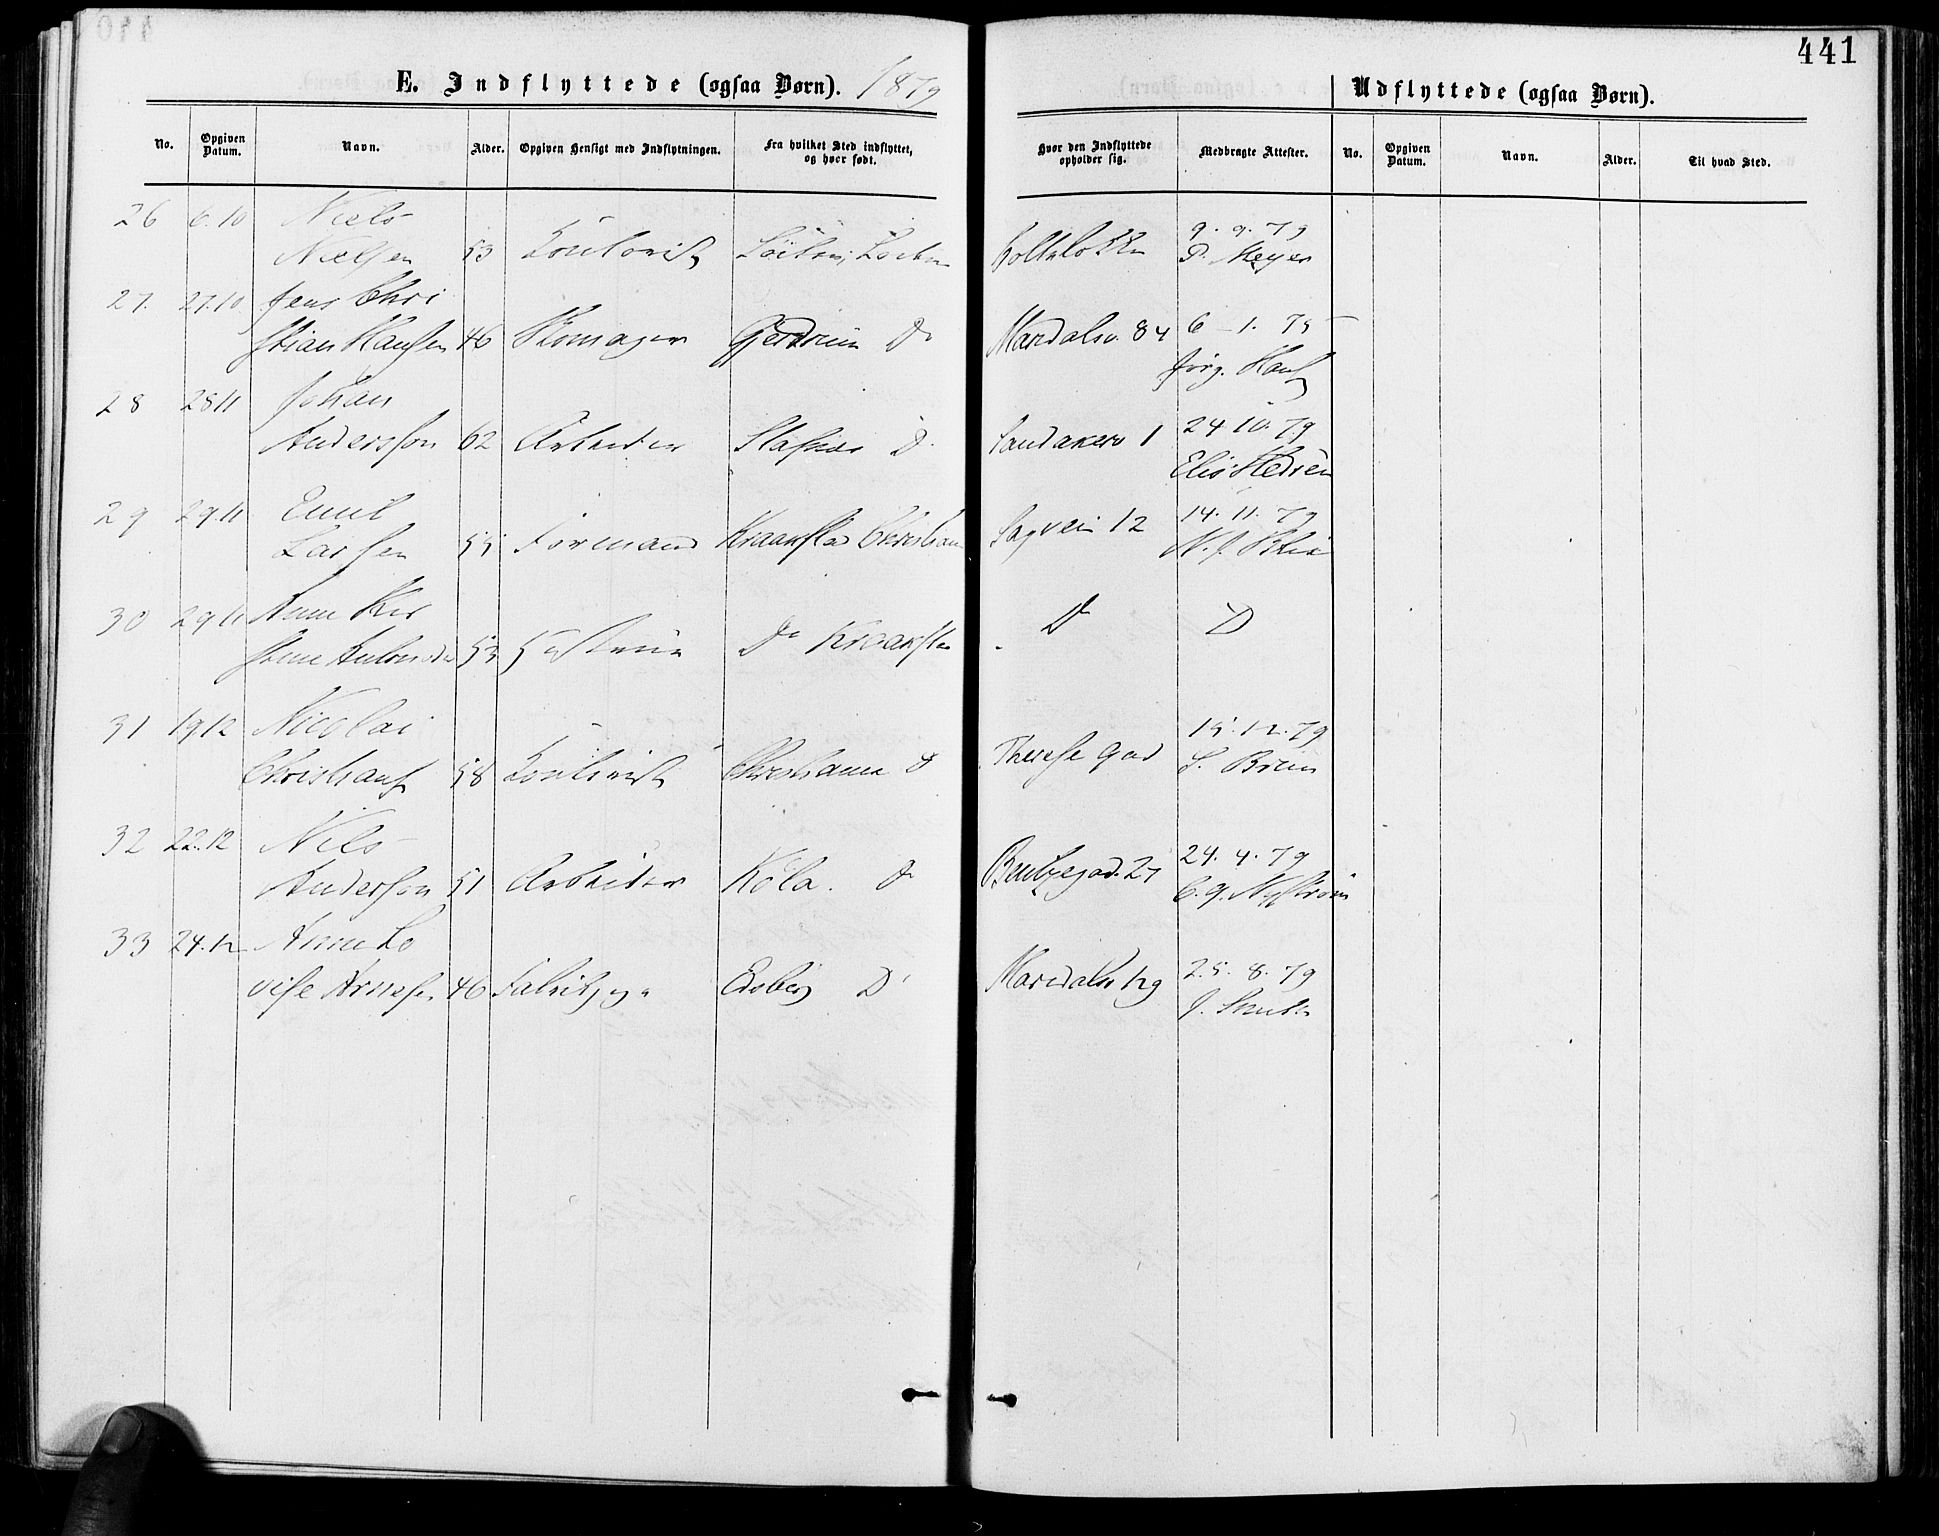 441
E. Indflyttede (ogsaa Børn). 1879
Udflyttede (ogsaa Børn).
No. Opgiven Datum. Navn. Alder. Opgiven Hensigt med Indflytningen. Fra hvilket Sted indflyttet, og hvor født. Hvor den Indflyttede opholder sig. Medbragte Attester. No. Opgiven Datum. Navn. Alder. Til hvad Sted.
26 6.10 Niels 9. 9. 79
Nielsen 53 P. Meyer
27. 27.10 Jens Chri
stian Hansen 46 Skomager Gjerdrum Do Maridalsv. 84 6-1. 75
Jörg. Hans
28 28 11 Johan
Andersson 62 Arbeider D Sandakerv 1 24 10. 79
Elis Hedrén
29 29.11 Emil 14. 11. 79
Larsen 55 Formand Kraakstad Christian Sagvein 12
30 29 11 Anne Kir Do D
stine 53 Hustru Do Kraaksta
31 19.12 Nicolai 15. 12. 79
Christians 58 Christiania D Therese Gad S. Brun
32 22.12 Nils 24. 4. 79
Anderson 51 Arbeider Köla. Do Bentzegad. 27 C. G. Nyström
33 24.12 Anne Lo
vise Arnesen 46 Edsberg D Maridalsv 129 25. 8. 79